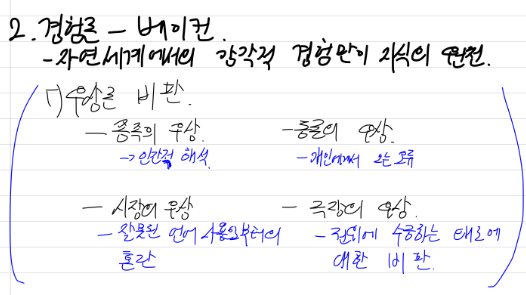 2. 경험론 - 베이컨.
- 자연세계에서의 감각적 경험만이 지식의 원천.
ㄱ) 우상론 비판.
- 종족의 우상.
→ 인간적 해석.
- 동굴의 우상.
- 개인에게서 오는 오류
- 시장의 우상
- 잘못된 언어 사용으로부터의
혼란
- 극장의 우상.
- 권위에 수긍하는 태도에
대한 비판.